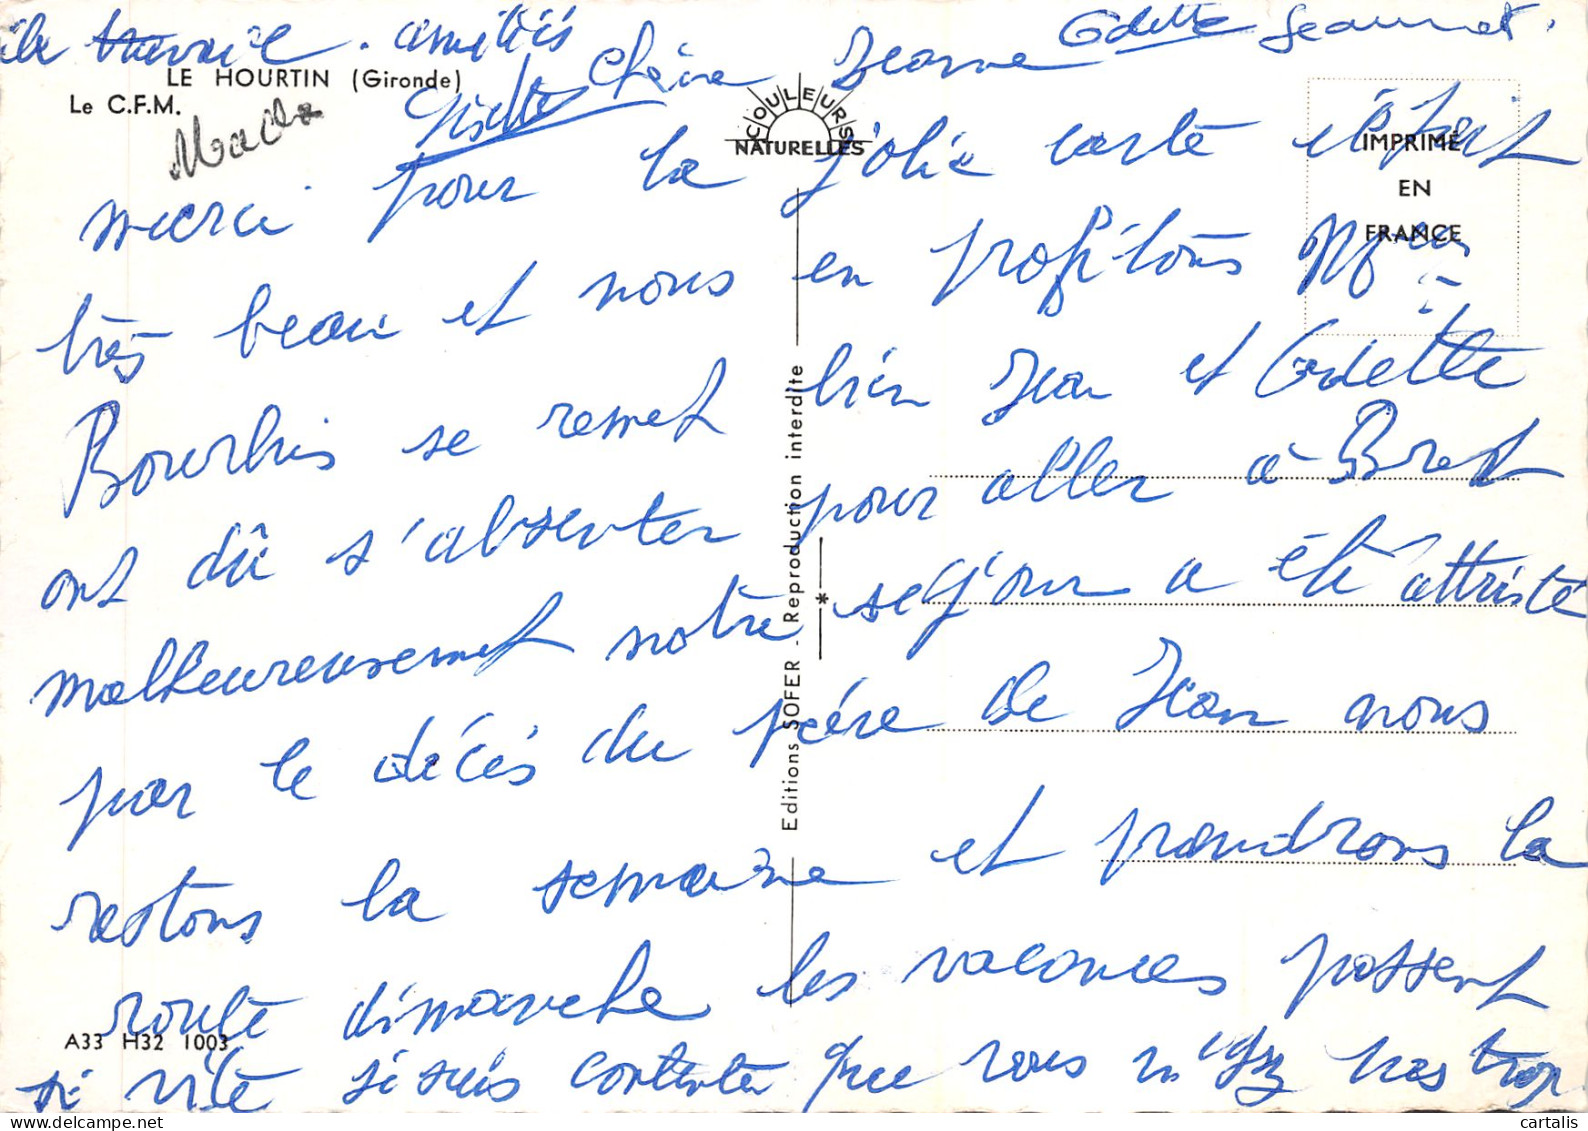 de travail. amitiés
Odette Jeannot.
LE HOURTIN (Gironde)
Le C.F.M.
Gisèle
Chère Jeanne
COULEURS
NATURELLES
IMPRIMÉ
EN
FRANCE
merci pour la jolie carte il fait
très beau et nous en profitons
Bourbis se remet bien Jean et Odette
ont dû s'absenter pour aller à Brest
malheureusement notre séjour a été attristé
par le décés du père de Jean nous
restons la semaine et prendrons la
route dimanche les vacances passent
si vite je suis contente que vous n'ayez pas trop
Editions SOFER - Reproduction interdite
*
A33 H32 1003
cartalis